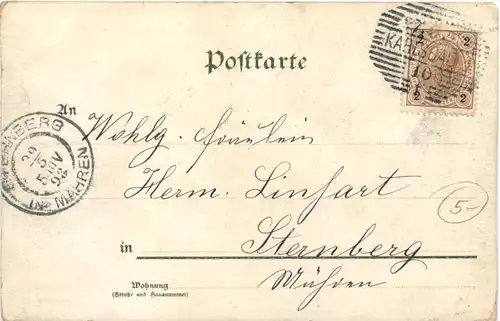 Postkarte
2 2
KARLSBAD
10
2 2
An
Wohlg. Fräulein
STERNBERG
29
5
98
IN MÄHREN
Herm. Linhart
5-
in Sternberg
Mähren
Wohnung
(Straße und Hausnummer)